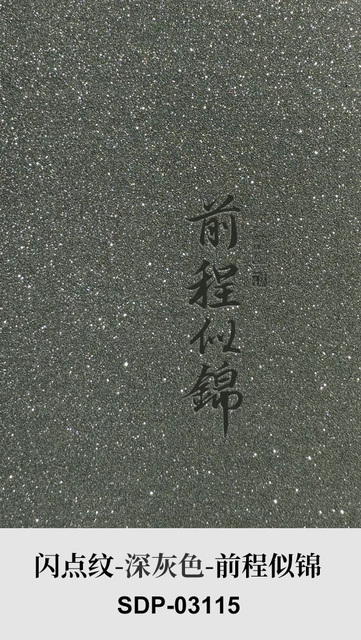 前程似錦
闪点纹-深灰色-前程似锦
SDP-03115